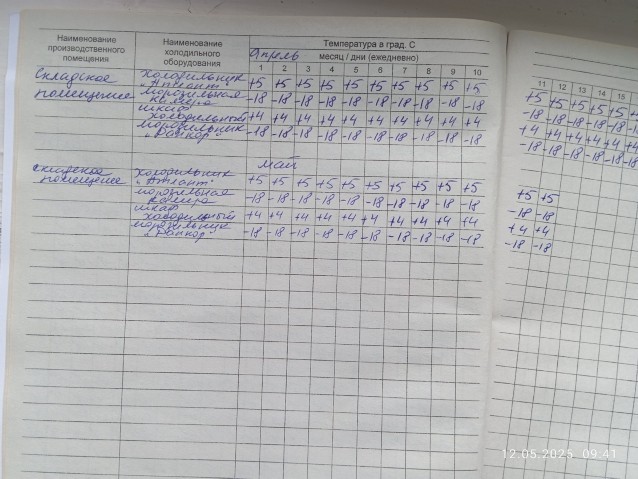 Наименование производственного помещения
Наименование холодильного оборудования
Температура в град. С
Апрель месяц / дни (ежедневно)
1 2 3 4 5 6 7 8 9 10 11 12 13 14 15
Складское Холодильник
"Атлант" +5 +5 +5 +5 +5 +5 +5 +5 +5 +5 +5 +5 +5 +5 +5
помещение морозильная
камера -18 -18 -18 -18 -18 -18 -18 -18 -18 -18 -18 -18 -18 -18 -18
шкаф
холодильный +4 +4 +4 +4 +4 +4 +4 +4 +4 +4 +4 +4 +4 +4 +4
морозильник
-18 -18 -18 -18 -18 -18 -18 -18 -18 -18 -18 -18 -18 -18 -18
май
складское холодильник
помещение "Атлант" +5 +5 +5 +5 +5 +5 +5 +5 +5 +5 +5 +5
морозильная
камера -18 -18 -18 -18 -18 -18 -18 -18 -18 -18 -18 -18
шкаф
холодильный +4 +4 +4 +4 +4 +4 +4 +4 +4 +4 +4 +4
морозильник
-18 -18 -18 -18 -18 -18 -18 -18 -18 -18 -18 -18
12.05.2025 09:41